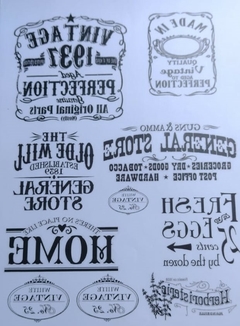 VINTAGE
1937
Aged
PERFECTION
Genuine
All Original Parts
MADE IN
QUALITY
Vintage
AGED TO
PERFECTION
THE
OLDE MILL
ESTABLISHED
1859
GENERAL
STORE
GUNS & AMMO
GENERAL STORE
GROCERIES•DRY GOODS•TOBACCO
POST OFFICE ★ HARDWARE
WHITE
VINTAGE
No. 25
FRESH
EGGS
cents
by the dozen
THERE'S NO PLACE LIKE
HOME
WHITE
VINTAGE
No. 25
WHITE
VINTAGE
No. 25
Herboristerie